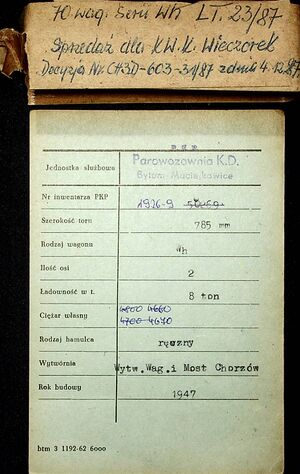 70 wag. Serii Wh LT. 23/87
Sprzedaż dla K.W.K. Wieczorek
Decyzja Nr. CH3D-603-31/87 z dnia 4.12.87
P K P
Jednostka służbowa Parowozownia K.D.
Bytom-Maciejkowice
Nr inwentarza PKP 1926-9
Szerokość toru 785 mm
Rodzaj wagonu Wh
Ilość osi 2
Ładowność w t. 8 ton
Ciężar własny 4800 4660
4700 4670
Rodzaj hamulca ręczny
Wytwórnia Wytw.Wag.i Most Chorzów
Rok budowy 1947
btm 3 1192-62 6000